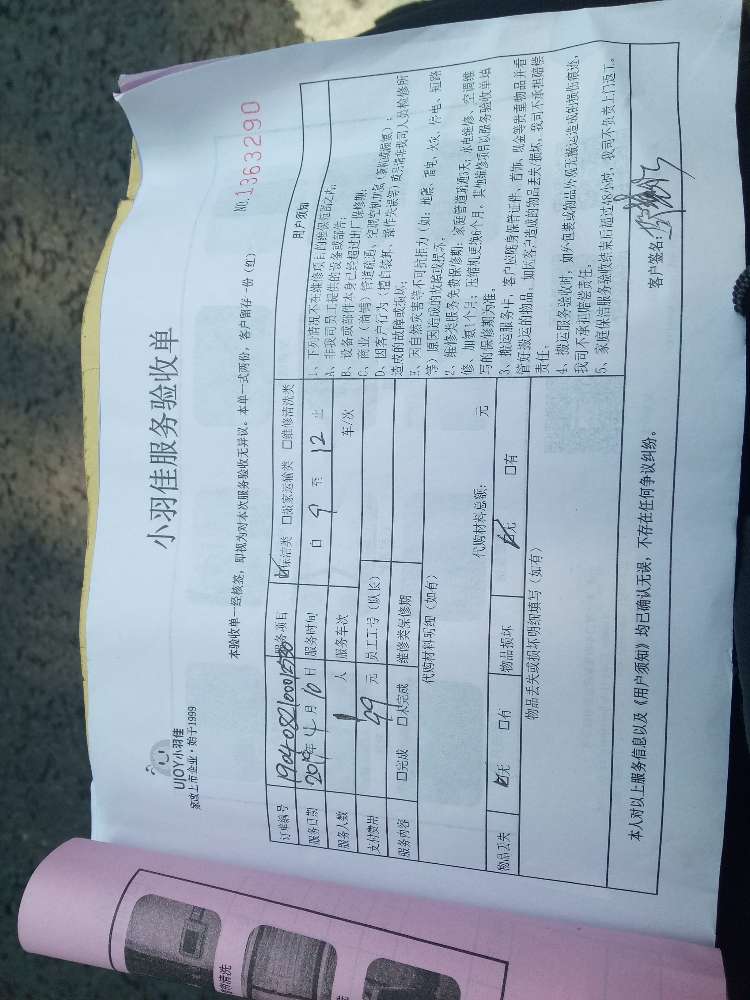 UJOY小羽佳
家政上市企业·始于1999
小羽佳服务验收单
本验收单一经核签，即视为对本次服务验收无异议。本单一式两份，客户留存一份（红）
NO.1363290
订单编号 服务项目 ☑保洁类 □搬家运输类 □维修清洗类
服务日期 2019年4月10日 服务时间 自 9 至 12 止
服务人数 1 人 服务车次 车/次
支付费用 99 元 员工工号（队长）
服务内容 □完成 □未完成 维修类保修期
代购材料明细（如有）
代购材料总额： 元
物品丢失 ☑无 □有 物品损坏 ☑无 □有
物品丢失或损坏明细填写（如有）
用户须知
1、下列情况不在维修项目的维保范围之内：
A、非我司员工提供的设备或部件；
B、设备或部件本身已经超过出厂保修期；
D、因客户行为（擅自装卸、
造成的故障或损坏。
E、因自然灾害等不可抗拒力（如：地震、雷电、火灾、停电、短路
等）原因造成的故障或损坏。
2、维修类服务免费保修期：家庭管道疏通3天，水电维修、空调维
修、加氨1个月；压缩机更换6个月，其他维修项目以服务验收单填
写的保修期为准。
3、搬运服务中，客户应随身保管证件、首饰、现金等贵重物品并看
管好搬运的物品，如因客户造成的物品丢失/损坏，我司不承担赔偿
责任；
4、搬运服务验收时，如外包装或物品外观无搬运造成的损伤痕迹，
我司不承担赔偿责任。
5、家庭保洁服务验收结束后超过48小时，我司不负责上门返工。
本人对以上服务信息以及《用户须知》均已确认无误，不存在任何争议纠纷。
客户签名：
清洗